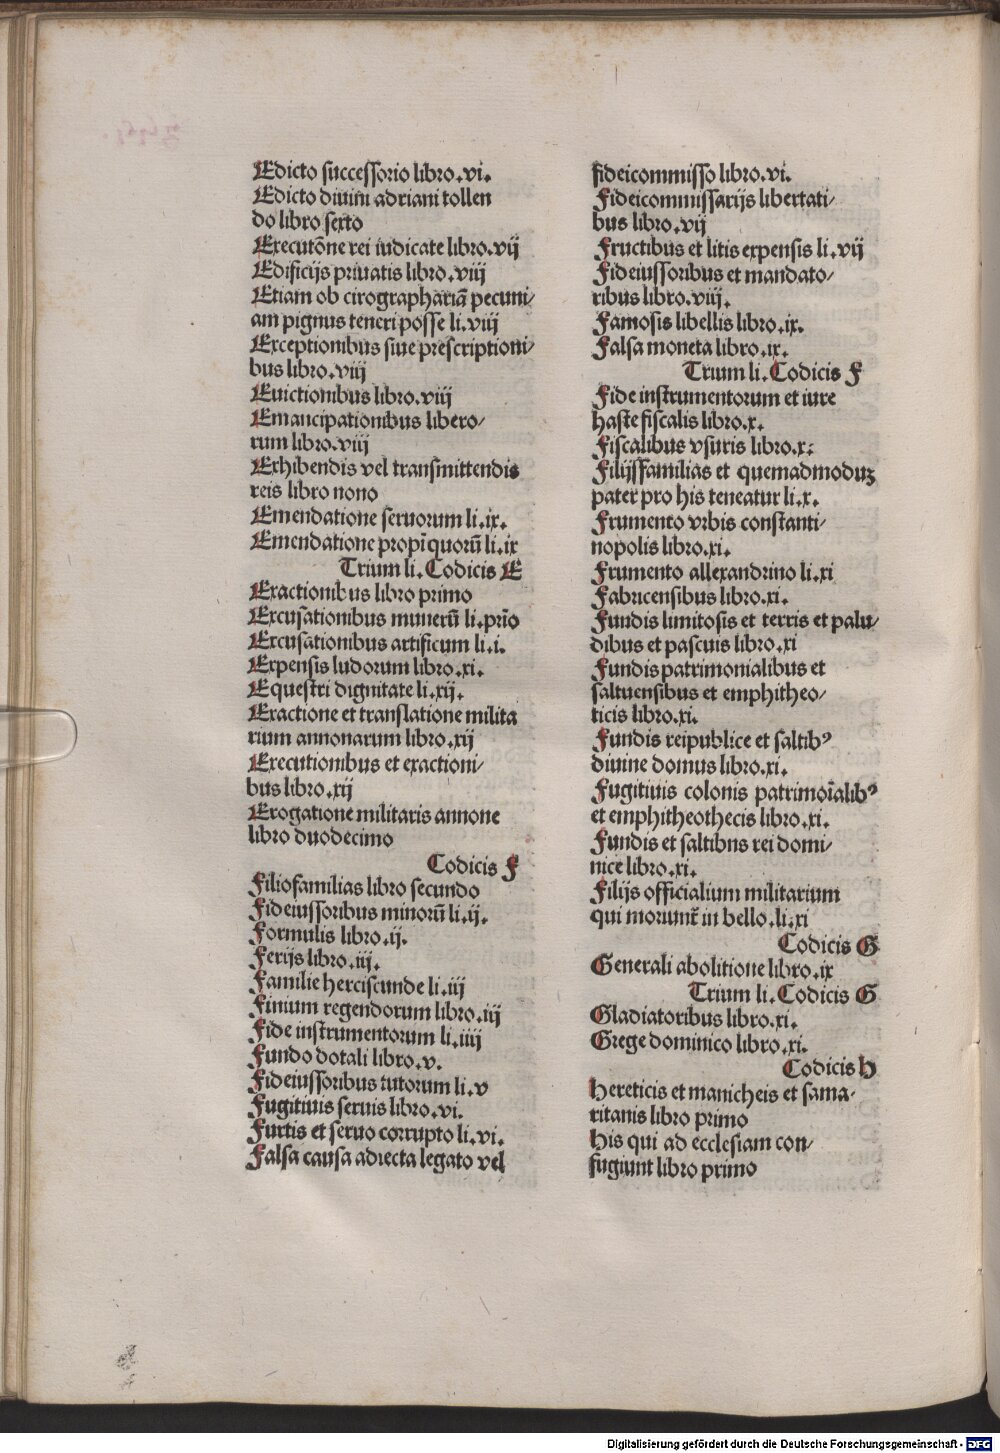 Edicto successorio libro.vi.
Edicto diuini adriani tollen
do libro sexto
Executōne rei iudicate libro.vij
Edificijs priuatis libro.viij
Etiam ob cirographariā pecuni/
am pignus teneri posse li.viij
Exceptionibus siue prescriptioni/
bus libro.viij
Euictionibus libro.viij
Emancipationibus libero/
rum libro.viij
Exhibendis vel transmittendis
reis libro nono
Emendatione seruorum li.ix.
Emendatione propīquorū li.ix
Trium li.Codicis E
Exactionibus libro primo
Excusationibus munerū li.prīo
Excusationibus artificum li.i.
Expensis ludorum libro.xi.
Equestri dignitate li.xij.
Exactione et translatione milita
rium annonarum libro.xij
Executionibus et exactioni/
bus libro.xij
Erogatione militaris annone
libro duodecimo
Codicis F
Filiofamilias libro secundo
Fideiussoribus minorū li.ij.
Formulis libro.ij.
Ferijs libro.iij.
Familie herciscunde li.iij
Finium regendorum libro.iij
Fide instrumentorum li.iiij
Fundo dotali libro.v.
Fideiussoribus tutorum li.v
Fugitiuis seruis libro.vi.
Furtis et seruo corrupto li.vi.
Falsa causa adiecta legato vel
fideicommisso libro.vi.
Fideicommissarijs libertati/
bus libro.vij
Fructibus et litis expensis li.vij
Fideiussoribus et mandato/
ribus libro.viij.
Famosis libellis libro.ix.
Falsa moneta libro.ix.
Trium li.Codicis F
Fide instrumentorum et iure
haste fiscalis libro.x.
Fiscalibus vsuris libro.x:
Filijsfamilias et quemadmoduꝫ
pater pro his teneatur li.x.
Frumento vrbis constanti/
nopolis libro.xi.
Frumento allexandrino li.xi
Fabricensibus libro.xi.
Fundis limitosis et terris et palu/
dibus et pascuis libro.xi
Fundis patrimonialibus et
saltuensibus et emphitheo/
ticis libro.xi.
Fundis reipublice et saltibꝰ
diuine domus libro.xi.
Fugitiuis colonis patrimoīalibꝰ
et emphitheothecis libro.xi.
Fundis et saltibns rei domi/
nice libro.xi.
Filijs officialium militarium
qui moriunt᷑ in bello.li.xi
Codicis G
Generali abolitione libro.ix
Trium li.Codicis G
Gladiatoribus libro.xi.
Grege dominico libro.xi.
Codicis H
Hereticis et manicheis et sama/
ritanis libro primo
His qui ad ecclesiam con/
fugiunt libro primo
Digitalisierung gefördert durch die Deutsche Forschungsgemeinschaft - DFG